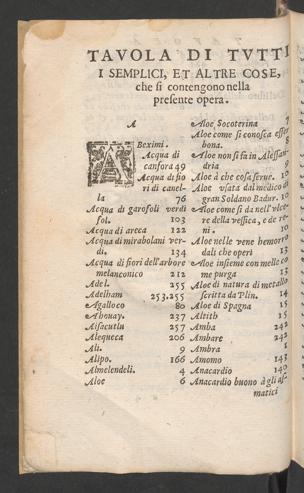 TAVOLA DI TVTTI
I SEMPLICI, ET ALTRE COSE,
che si contengono nella
presente opera.
A
ABeximi.
Acqua di
canfora 49
Acqua di fio
ri di canel-
la 76
Acqua di garofoli verdi
fol. 103
Acqua di areca 122
Acqua di mirabolani ver-
di. 134
Acqua di fiori dell'arbore
melanconico 212
Adel. 255
Adelham 253.255
Agalloco 80
Ahouay. 237
Aisacutlu 257
Alequeca 206
Ali. 9
Alipo. 166
Almelendeli. 4
Aloe 6
Aloe Socoterina 7
Aloe come si conosca esser
bona. 8
Aloe non si fà in Alessan-
dria 9
Aloe à che cosa serue. 10
Aloe vsata dal medico di
gran Soldano Badur. 10
Aloe come si da nell'vlce-
re della vessica, e de re-
ni. 10
Aloe nelle vene hemorro
dali che operi 13
Aloe insieme con melle co
me purga 13
Aloe di natura di metallo
scritta da Plin. 14
Aloe di Spagna 15
Altith 15
Amba 242
Ambare 242
Ambra 1
Amomo 143
Anacardio 140
Anacardio buono à gli as-
matici